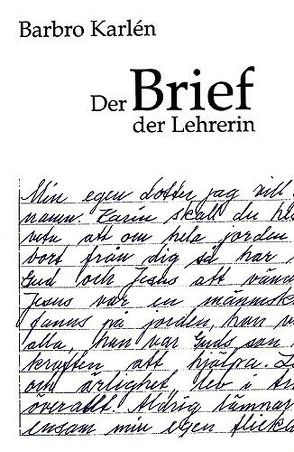 Barbro Karlén
Der Brief
der Lehrerin
Min egen dotter jag vill
namn. Karin skall du
veta att om hela jorden
bort från dig så har
Gud och Jesus att
Jesus var en människa
fanns på jorden, han
alla, han var Guds son
kraften att hjälpa.
om ärlighet, lev i
överallt! Aldrig lämnar
ensam min egen flicka